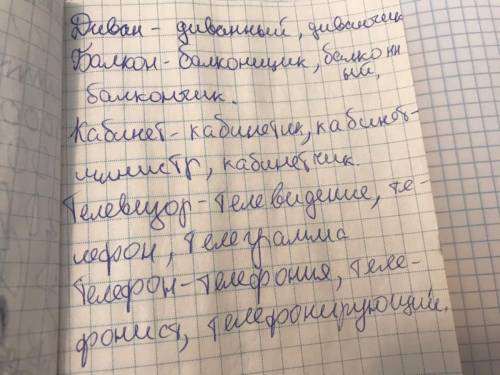 Диван - диванный, диванчик
Балкон - балконщик, балконн
ый,
балкончик.
Кабинет - кабинетик, кабинет-
министр, кабинетчик
Телевизор - телевидение, те-
лефон, телеграмма
Телефон - телефония, теле-
фонист, телефонирующий.